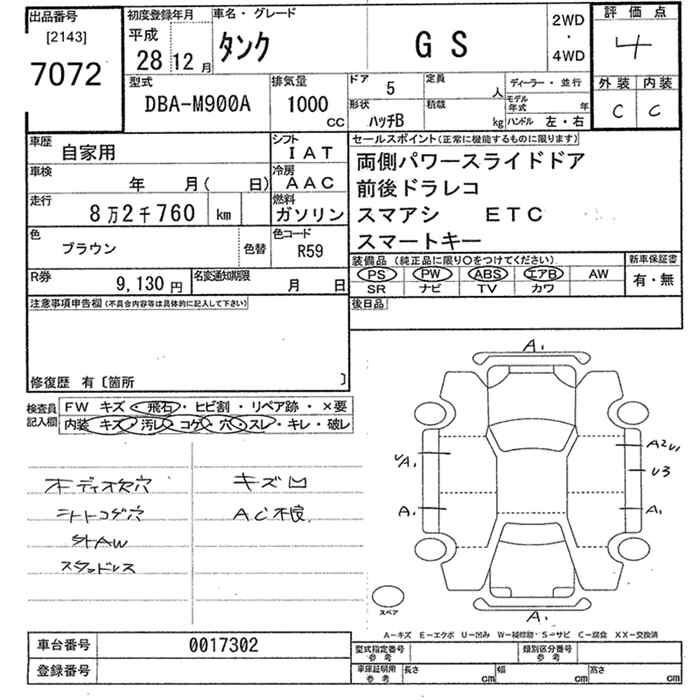 出品番号 初度登録年月 車名・グレード 2WD・4WD 評価点
[2143] 平成
7072 28 12月 タンク GS 4
型式 排気量 ドア 5 定員 人 ディーラー・並行 外装 内装
DBA-M900A 1000 CC 形状 ハッチB 積載 kg モデル年式 年 ハンドル 左・右 C C
車歴 自家用 シフト IAT セールスポイント(正常に機能するものに限ります)
両側パワースライドドア
車検 年 月( 日) 冷房 AAC 前後ドラレコ
走行 8万2千760 km 燃料 ガソリン スマアシ ETC
色 ブラウン 色替 色コード R59 スマートキー
装備品(純正品に限り○をつけてください) 新車保証書
R券 9,130円 名変通知期限 月 日 PS PW ABS エアB AW 有・無
SR ナビ TV カワ
注意事項申告欄(不具合内容等は具体的に記入して下さい) 後日品
修復歴 有〔箇所 〕
検査員記入欄 FW キズ・飛石・ヒビ割・リペア跡・×要
内装 キズ・汚レ・コゲ・穴・スレ・キレ・破レ
ボディオ欠穴 キズ凹
シートコゲ穴 AC不良
社外AW
スタッドレス
A1
UA1 A2U1
U3
A1 A1
スペア A1
A-キズ E-エクボ U-凹み W-補修跡・S-サビ C-腐食 XX-交換済
車台番号 0017302 型式指定番号 参考 類別区分番号 参考
登録番号 車庫証明用 参考 長さ cm 幅 cm 高さ cm